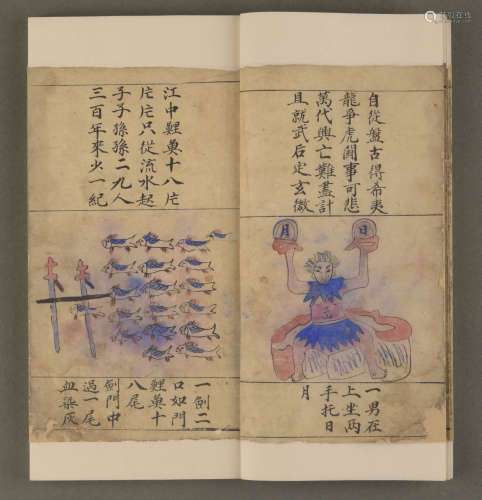 自從盤古得希夷
龍爭虎鬪事可悲
萬代興亡難盡計
且就武后定玄微
月
日
一男在
上坐兩
手托日
月
江中鯉魚十八片
片片只從流水起
子子孫孫二九人
三百年來火一紀
一劍二
口如門
鯉魚十
八尾
劍門中
過一尾
血染灰